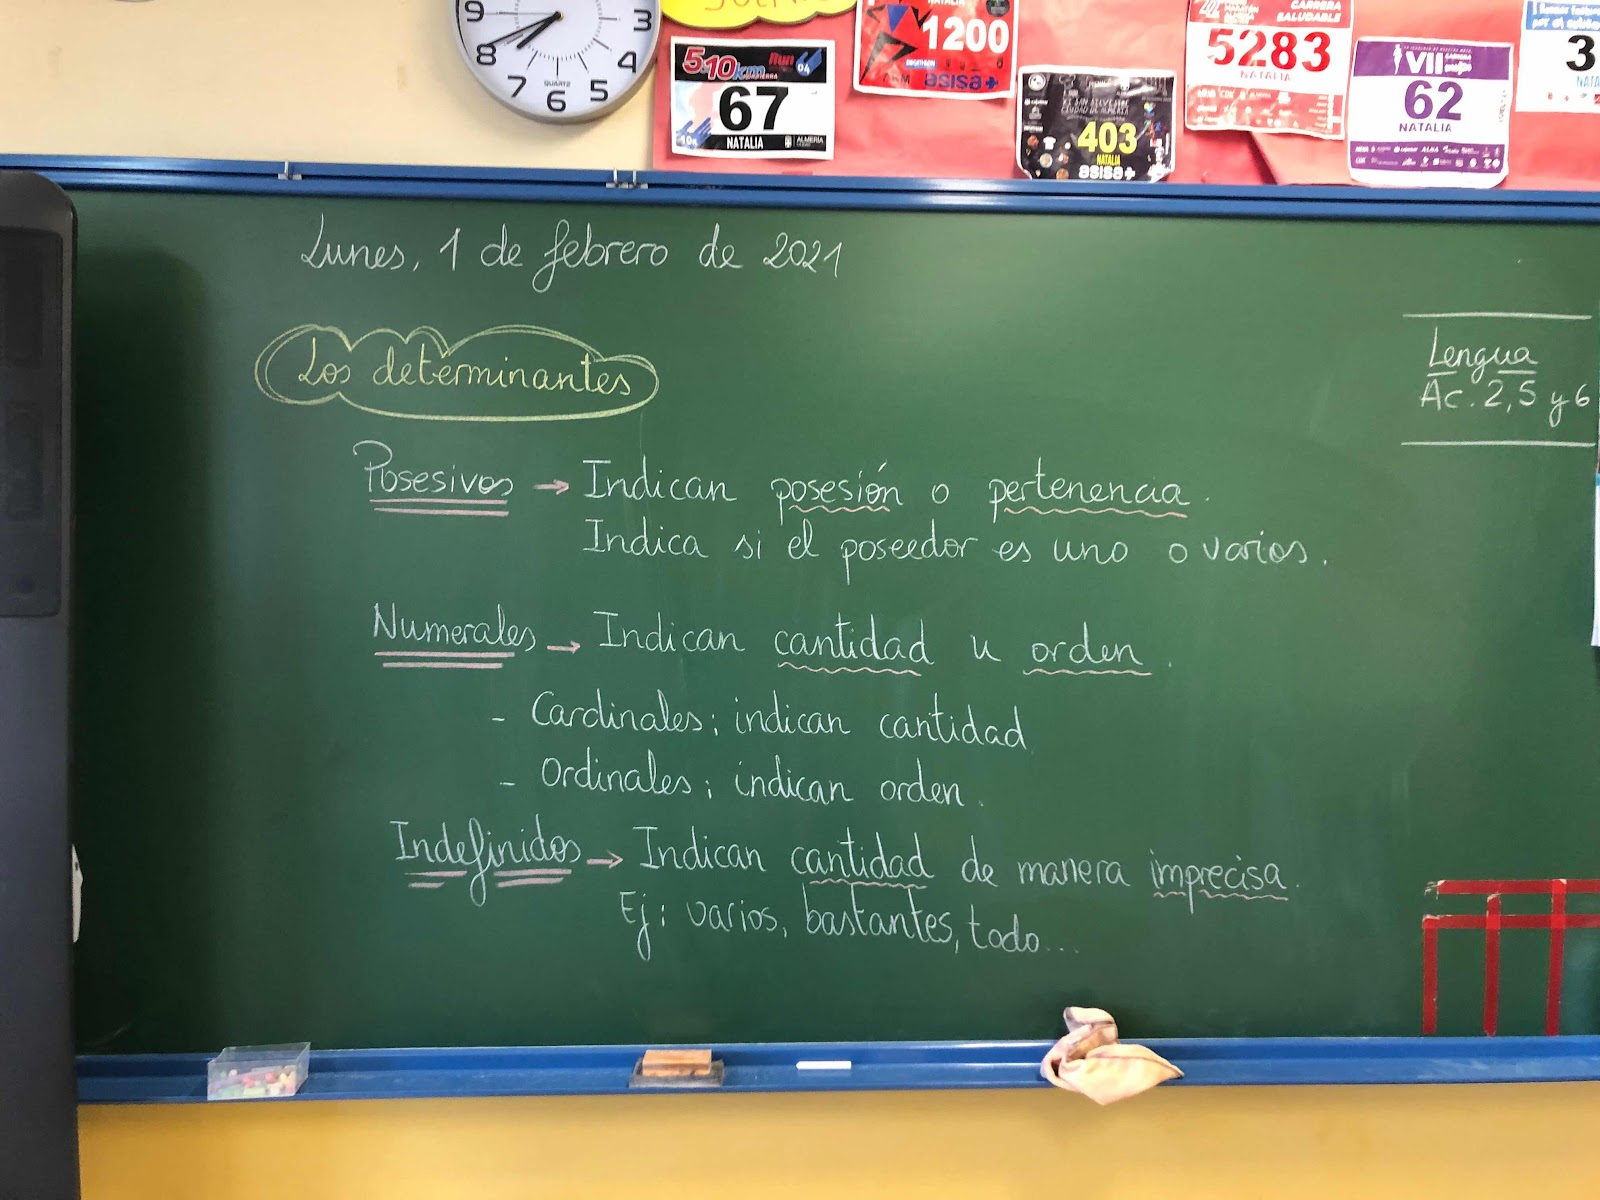 9 3
8 4
7 6 5
QUARTZ
5 y 10km Run
67
NATALIA
ALMERÍA
NATALIA
1200
asisa+
SAN SILVESTRE
CIUDAD DE ALMERÍA
403
NATALIA
asisa+
CARRERA
SALUDABLE
5283
NATALIA
VII
62
NATALIA
3
Lunes, 1 de febrero de 2021
Los determinantes
Lengua
Ac. 2, 5 y 6
Posesivos → Indican posesión o pertenencia.
Indica si el poseedor es uno o varios.
Numerales → Indican cantidad u orden.
- Cardinales: indican cantidad
- Ordinales: indican orden.
Indefinidos → Indican cantidad de manera imprecisa.
Ej: varios, bastantes, todo...